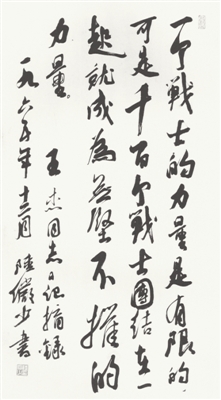 一个戰士的力量是有限的.
可是千百个戰士團结在一
起就成為无堅不摧的
力量。
王杰同志日记摘録
一九六五年十二月 陸儼少書